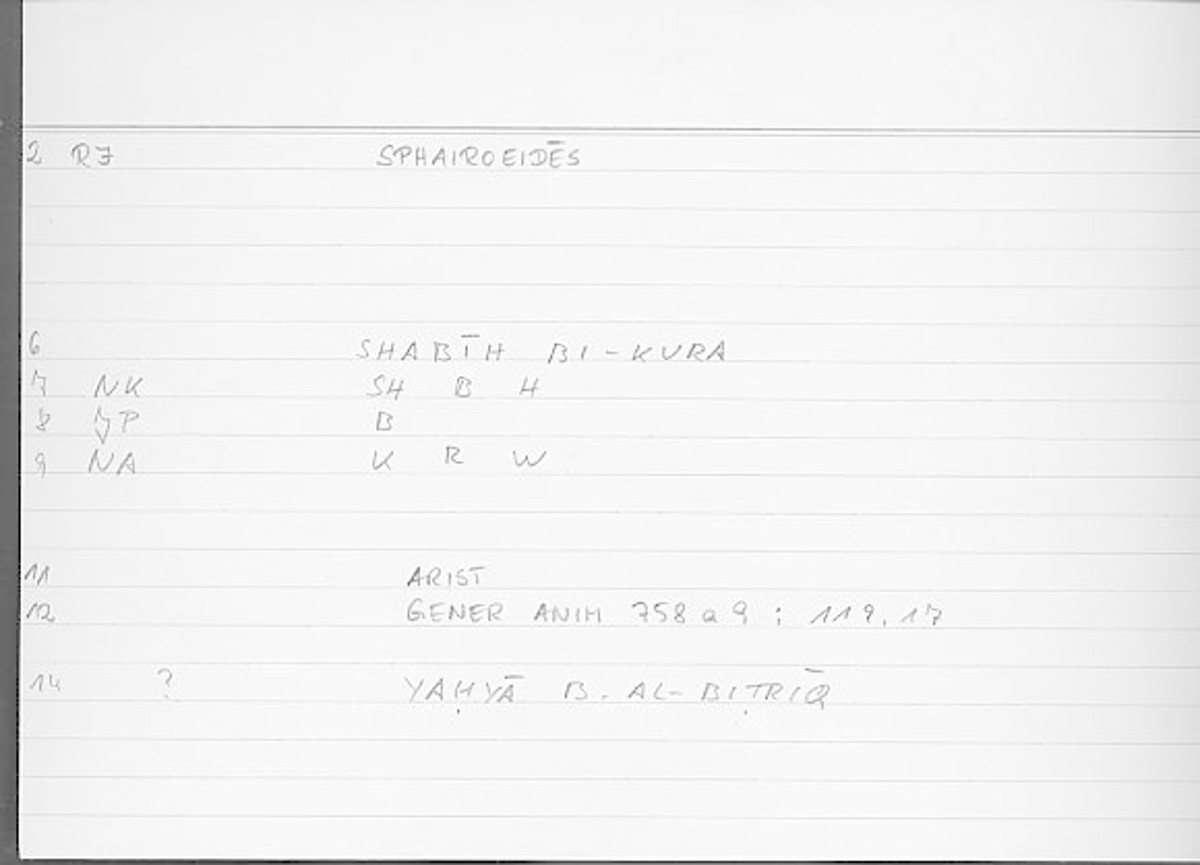 2 RJ SPHAIROEIDĒS
6 SHABĪH BI-KURA
7 NK SH B H
8 JP B
9 NA K R W
11 ARIST
12 GENER ANIM 758 a 9 : 119, 17
14 ? YAḤYĀ B. AL-BIṬRĪQ